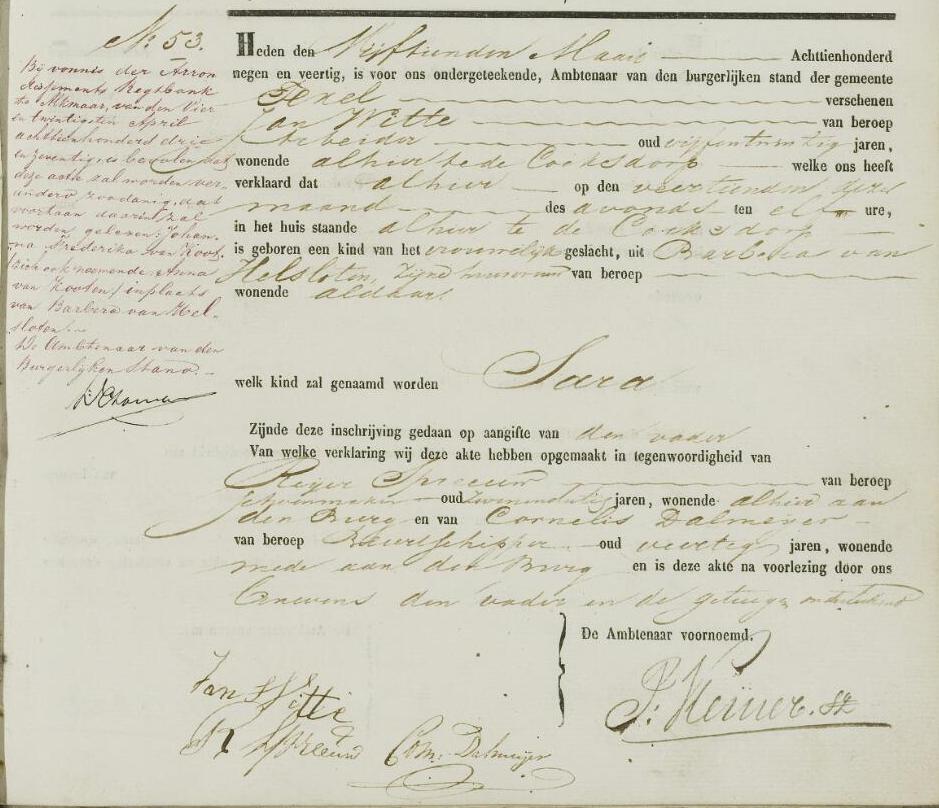 No. 53.
Bij vonnis der Arron
dissements Regtbank
te Alkmaar, van den Vier
en twintigsten April
achttienhonderd drie
en zeventig, is bevolen dat
deze acte zal worden ver
anderd zoodanig, dat
voortaan daarin zal
worden gelezen: Johan-
na Frederika van Kooten
zich ook noemende Anna
van Kooten / in plaats
van Barbera van Hel-
sloten.
De Ambtenaar van den
Burgerlijken Stand.
Heden den Vijftienden Maart Achttienhonderd
negen en veertig, is voor ons ondergeteekende, Ambtenaar van den burgerlijken stand der gemeente
Texel verschenen
Jan Witte van beroep
Arbeider oud vijfentwintig jaren,
wonende alhier te de Cocksdorp welke ons heeft
verklaard dat alhier op den veertienden dezer
maand des avonds ten elf ure,
in het huis staande alhier te de Cocksdorp
is geboren een kind van het vrouwelijk geslacht, uit Barbera van
Helsloten, zijne huisvrouw van beroep
wonende aldaar
welk kind zal genaamd worden Sara
Zijnde deze inschrijving gedaan op aangifte van den vader
Van welke verklaring wij deze akte hebben opgemaakt in tegenwoordigheid van
Reijer Spreeuw van beroep
schoenmaker oud jaren, wonende alhier aan
den Burg en van Cornelis Dalmeyer
van beroep Beurtschipper oud veertig jaren, wonende
mede aan den Burg en is deze akte na voorlezing door ons
benevens den vader en de getuigen onderteekend
De Ambtenaar voornoemd.
Jan Witte
R Spreeuw Corn: Dalmeijer